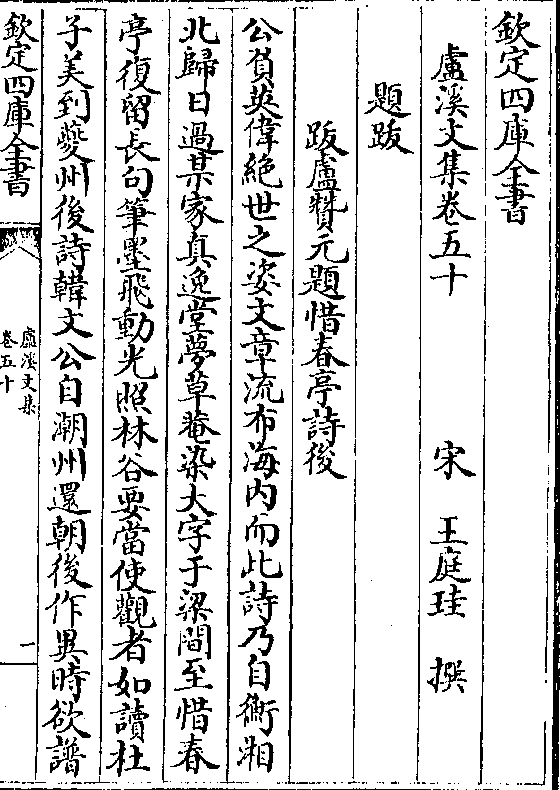 欽定四庫全書
盧溪文集卷五十
宋　王庭珪　撰
題跋
跋盧贊元題惜春亭詩後
公負英偉絶世之姿文章流布海内而此詩乃自衡湘
北歸日過某家真逸堂夢草菴染大字于梁間至惜春
亭復留長句筆墨飛動光照林谷要當使觀者如讀杜
子美到夔州後詩韓文公自潮州還朝後作異時欲譜
欽定四庫全書
盧溪文集
卷五十
一